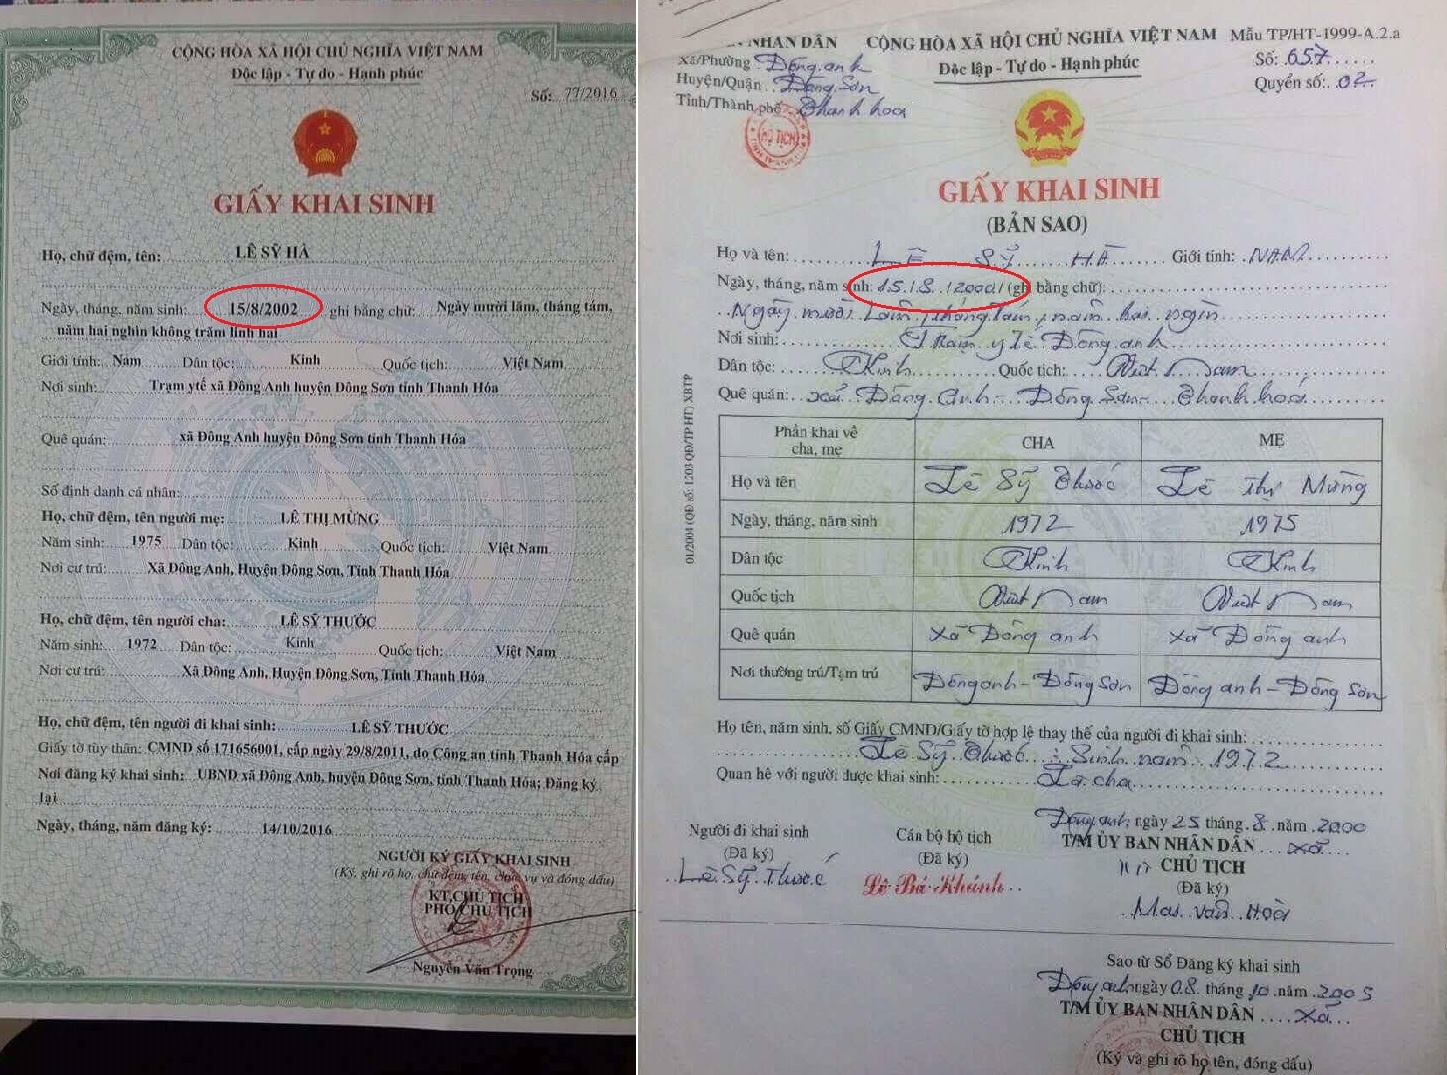 CỘNG HÒA XÃ HỘI CHỦ NGHĨA VIỆT NAM
Độc lập - Tự do - Hạnh phúc
Số: 77/2016
GIẤY KHAI SINH
Họ, chữ đệm, tên: LÊ SỸ HÀ
Ngày, tháng, năm sinh: 15/8/2002 ghi bằng chữ: Ngày mười lăm, tháng tám,
năm hai nghìn không trăm linh hai
Giới tính: Nam Dân tộc: Kinh Quốc tịch: Việt Nam
Nơi sinh: Trạm ytế xã Đông Anh huyện Đông Sơn tỉnh Thanh Hóa
Quê quán: xã Đông Anh huyện Đông Sơn tỉnh Thanh Hóa
Số định danh cá nhân:
Họ, chữ đệm, tên người mẹ: LÊ THỊ MỪNG
Năm sinh: 1975 Dân tộc: Kinh Quốc tịch: Việt Nam
Nơi cư trú: Xã Đông Anh, Huyện Đông Sơn, Tỉnh Thanh Hóa
Họ, chữ đệm, tên người cha: LÊ SỸ THƯỚC
Năm sinh: 1972 Dân tộc: Kinh Quốc tịch: Việt Nam
Nơi cư trú: Xã Đông Anh, Huyện Đông Sơn, Tỉnh Thanh Hóa
Họ, chữ đệm, tên người đi khai sinh: LÊ SỸ THƯỚC
Giấy tờ tùy thân: CMND số 171656001, cấp ngày 29/8/2011, do Công an tỉnh Thanh Hóa cấp
Nơi đăng ký khai sinh: UBND xã Đông Anh, huyện Đông Sơn, tỉnh Thanh Hóa; Đăng ký
lại
Ngày, tháng, năm đăng ký: 14/10/2016
NGƯỜI KÝ GIẤY KHAI SINH
(Ký, ghi rõ họ, chữ đệm, tên, chức vụ và đóng dấu)
KT.CHỦ TỊCH
PHÓ CHỦ TỊCH
Nguyễn Văn Trọng
NHÂN DÂN CỘNG HÒA XÃ HỘI CHỦ NGHĨA VIỆT NAM Mẫu TP/HT-1999-A.2.a
Xã/Phường Đông anh Độc lập - Tự do - Hạnh phúc Số: 657
Huyện/Quận Đông Sơn Quyển số: 02
Tỉnh/Thành phố Thanh hoá
HỘ TỊCH
GIẤY KHAI SINH
(BẢN SAO)
Họ và tên: LÊ SỸ HÀ Giới tính: NAM
Ngày, tháng, năm sinh: 15/8/2000 (ghi bằng chữ)
Ngày mười lăm, tháng tám, năm hai ngìn
Nơi sinh: Trạm y tế Đông anh
Dân tộc: Kinh Quốc tịch: Việt Nam
Quê quán: xã Đông Anh Đông Sơn Thanh hoá
Phần khai về cha, mẹ CHA MẸ
Họ và tên Lê Sỹ Thước Lê Thị Mừng
Ngày, tháng, năm sinh 1972 1975
Dân tộc Kinh Kinh
Quốc tịch Việt Nam Việt Nam
Quê quán Xã Đông anh Xã Đông anh
Nơi thường trú/Tạm trú Đông anh - Đông Sơn Đông anh - Đông Sơn
01/2004 (QĐ số: 1203 QĐ/TP HT) XBTP
Họ tên, năm sinh, số Giấy CMND/Giấy tờ hợp lệ thay thế của người đi khai sinh:
Lê Sỹ Thước : Sinh năm 1972
Quan hệ với người được khai sinh: Là cha
Đông anh, ngày 25 tháng 8 năm 2000
Người đi khai sinh Cán bộ hộ tịch T/M ỦY BAN NHÂN DÂN xã
(Đã ký) (Đã ký) CHỦ TỊCH
Lê Sỹ Thước Lê Bá Khánh (Đã ký)
Mai Văn Hoà
Sao từ Sổ Đăng ký khai sinh
Đông anh ngày 08 tháng 10 năm 2005
T/M ỦY BAN NHÂN DÂN Xã
CHỦ TỊCH
(Ký và ghi rõ họ, tên, đóng dấu)